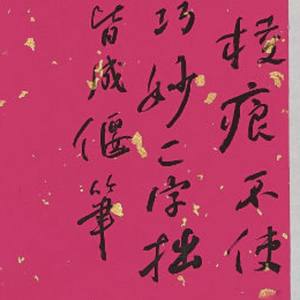 棱痕不使
巧妙二字拙
皆成偃筆